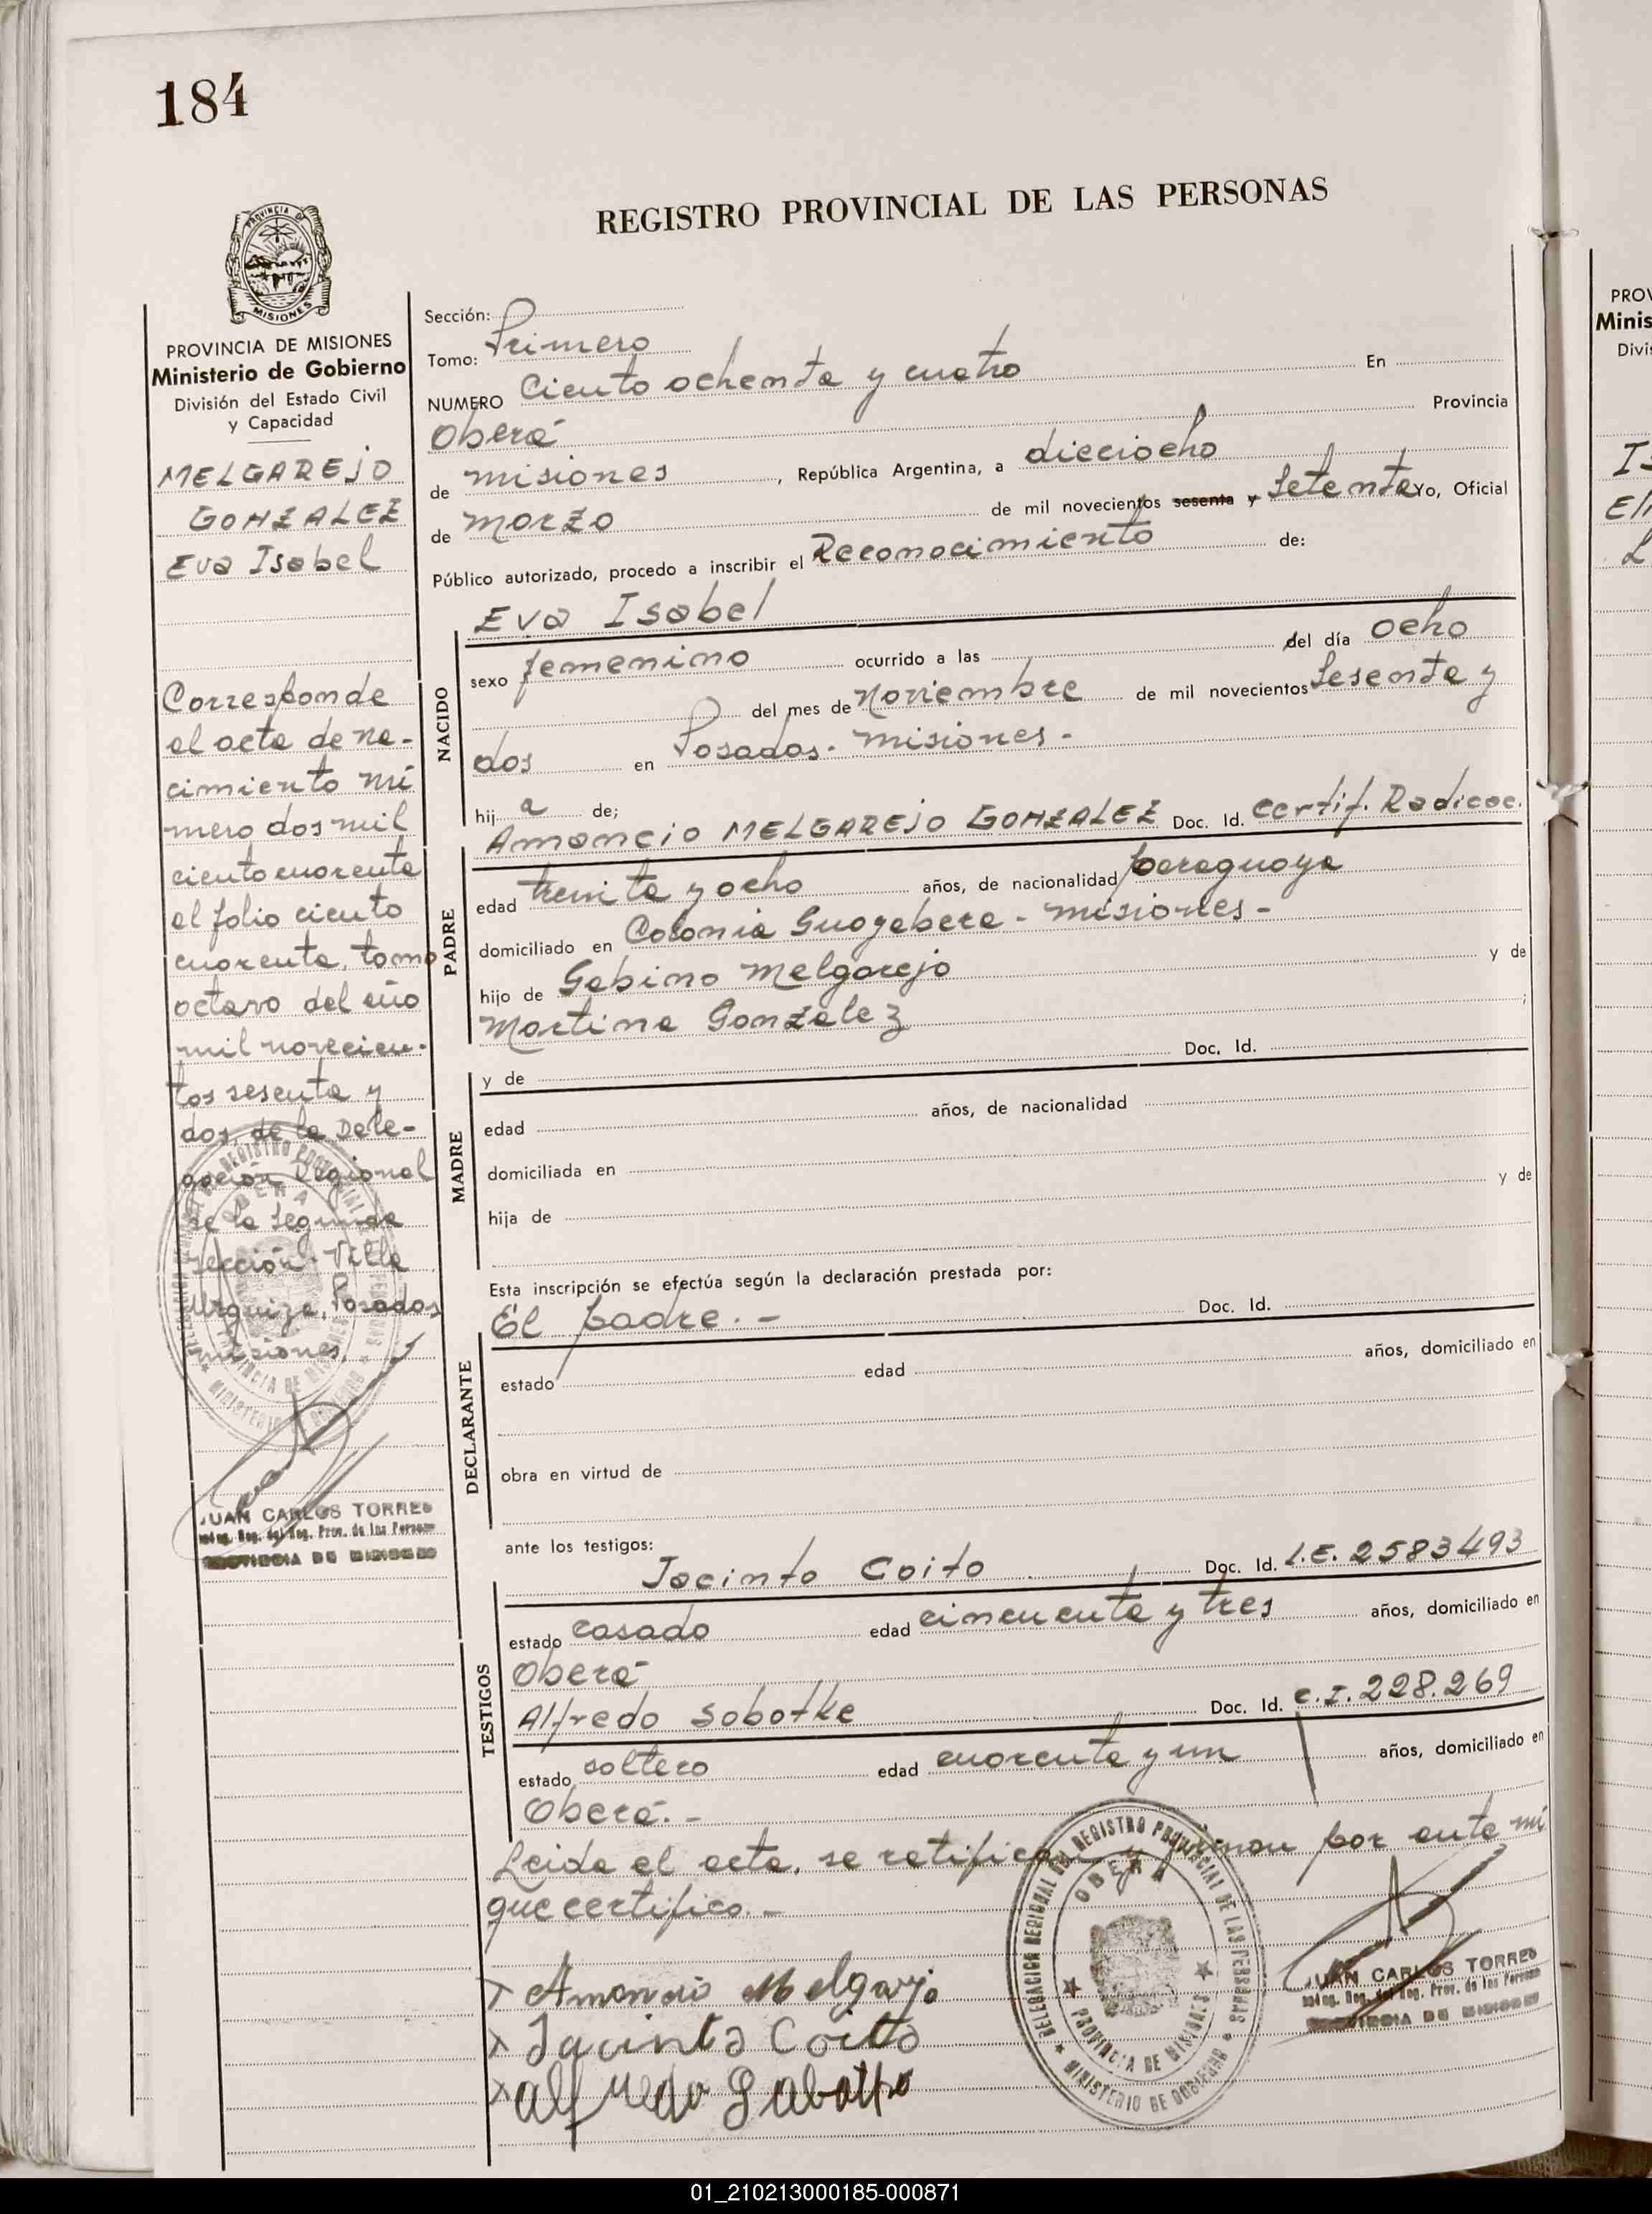 184
REGISTRO PROVINCIAL DE LAS PERSONAS
PROVINCIA DE
MISIONES
PROVINCIA DE MISIONES
Ministerio de Gobierno
División del Estado Civil
y Capacidad
MELGAREJO
GONZALEZ
Eva Isabel
Corresponde
al acta de na-
cimiento nú
mero dos mil
ciento cuarenta
al folio ciento
cuarenta, tomo
octavo del año
mil novecien-
tos sesenta y
dos, de la Dele-
gación Regional
de la Segunda
Sección Villa
Urquiza, Posadas
misiones.
JUAN CARLOS TORRES
Prov. de las Person
PROVINCIA DE MISIONES
Sección:
Tomo: Primero
NUMERO Ciento ochenta y cuatro En
Oberá Provincia
de misiones, República Argentina, a dieciocho
de marzo de mil novecientos sesenta y Setenta Yo, Oficial
Público autorizado, procedo a inscribir el Reconocimiento de:
Eva Isabel
NACIDO
sexo femenino ocurrido a las del día ocho
del mes de Noviembre de mil novecientos Sesenta y
dos en Posadas. misiones.-
hij a de;
Amancio MELGAREJO GONZALEZ Doc. Id. Certif. Radicac.
PADRE
edad treinta y ocho años, de nacionalidad paraguaya
domiciliado en Colonia Guayabera - misiones -
hijo de Gabino Melgarejo y de
Martina Gonzalez ;
y de Doc. Id.
MADRE
edad años, de nacionalidad
domiciliada en
hija de y de
Esta inscripción se efectúa según la declaración prestada por:
El padre.- Doc. Id.
DECLARANTE
estado edad años, domiciliado en
obra en virtud de
ante los testigos:
Jacinto Coito Doc. Id. L.E. 2583493
TESTIGOS
estado casado edad cincuenta y tres años, domiciliado en
Oberá
Alfredo Sobotke Doc. Id. C.I. 228.269
estado soltero edad cuarenta y un años, domiciliado en
Oberá.-
Leida el acta, se ratifican y firman por ante mi
que certifico.-
x Amancio Melgarejo
x Jacinto Coito
x alfredo Sabotke
DELEGACION REGIONAL DEL REGISTRO PROVINCIAL DE LAS PERSONAS
OBERA
PROVINCIA DE MISIONES
MINISTERIO DE GOBIERNO
JUAN CARLOS TORRES
Prov. de las Person
PROVINCIA DE MISIONES
PROV
Minis
Divi
01_210213000185-000871